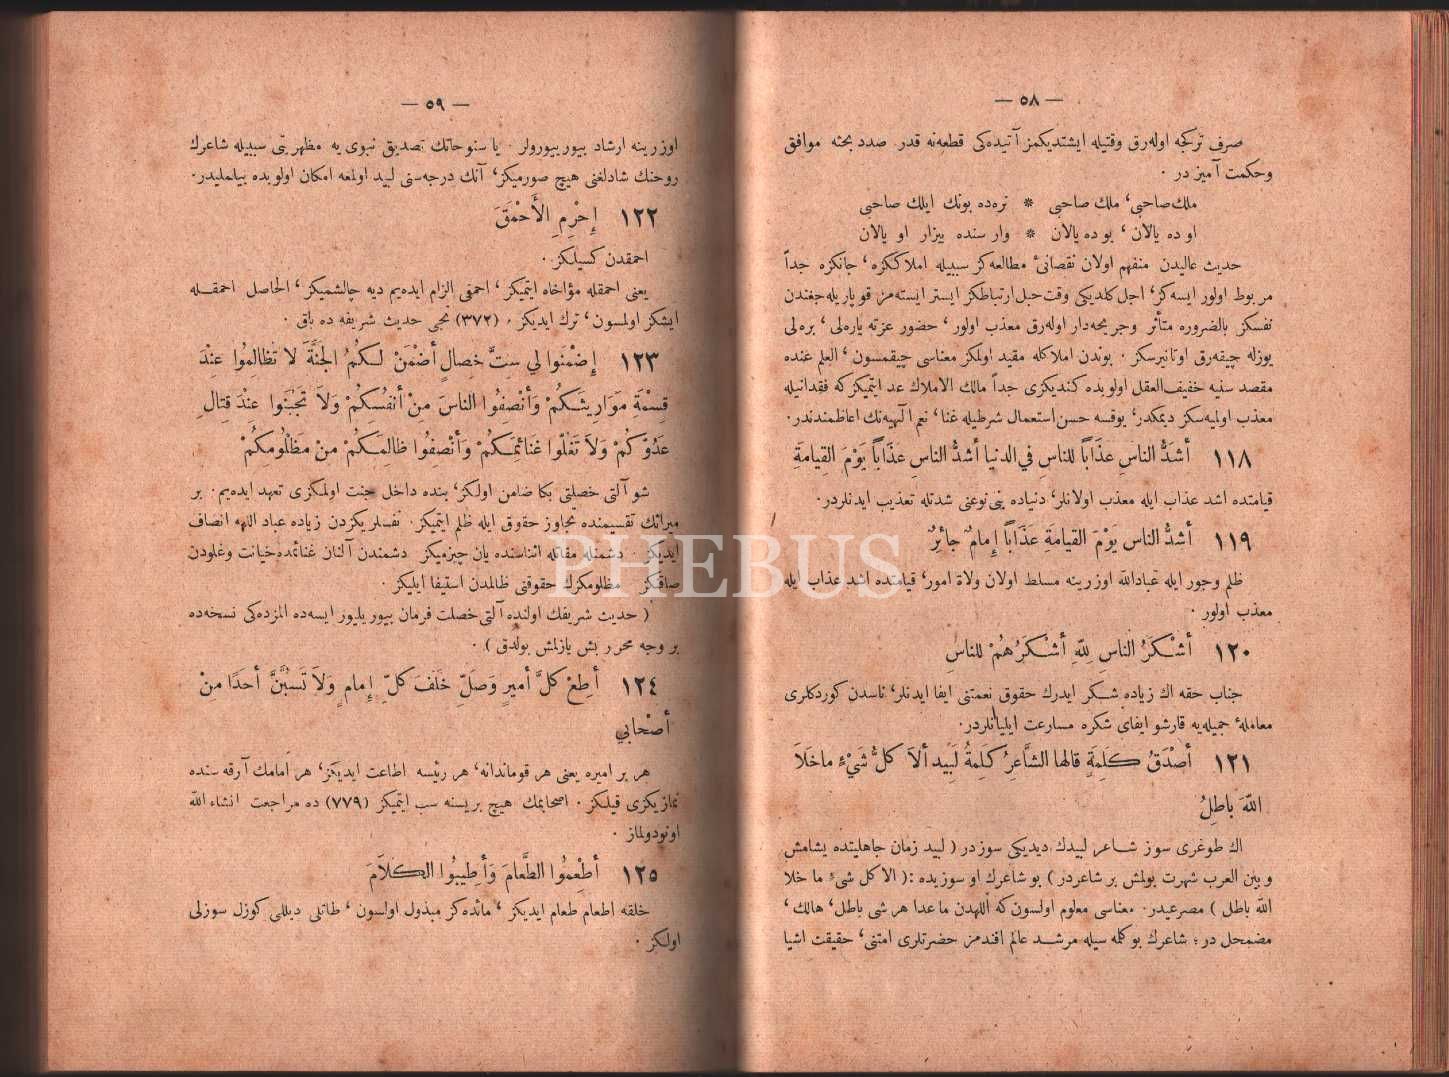 — ٥٨ —
صرف تركجه اوله‌رق وقتيله ايشتديكمز آتيده‌كى قطعه‌نه قدر صدد بحثه موافق
وحكمت آميز در .
ملك صاحبى، ملك صاحبى * نره‌ده بونك ايلك صاحبى
او ده يالان ، بو ده يالان * وار سنده بيزار او يالان
حديث عاليدن منفهم اولان نقصانئ مطالعه‌كز سببيله املاككزه، جانكزه جداً
مربوط اولور ايسه‌كز، اجل كلديكى وقت حبل ارتباطكز ايستر ايسته‌مز قوپاريله‌جغندن
نفسكز بالضروره متأثر وجريحه‌دار اوله‌رق معذب اولور ، حضور عزته ياره‌لى ، بره‌لى
يوزله چيقه‌رق اوتانيرسكز . بوندن املاكله مقيد اولمكز معناسى چيقمسون ، العلم عنده
مقصد سنيه خفيف‌العقل اولوبده كنديكزى جداً مالك الاملاك عد ايتميكزكه فقدانيله
معذب اوليه‌سكز ديمكدر، يوقسه حسن استعمال شرطيله غنا، نعم الهيه‌نك اعاظمندندر.
١١٨ أشدُّ الناسِ عذَاباً للناسِ في الدنيا أشدُّ الناسِ عذَاباً يَوْمَ القِيامَةِ
قيامتده اشد عذاب ايله معذب اولانلر، دنياده بنى نوعنى شدتله تعذيب ايدنلردر.
١١٩ أشدُّ الناس يَوْمَ القيامَةِ عَذَاباً إِمامٌ جائرٌ
ظلم وجور ايله عبادالله اوزرينه مسلط اولان ولاة امور، قيامتده اشد عذاب ايله
معذب اولور .
١٢٠ أشْكَرُ الناس لِلّهِ أشْكَرُهُمْ للناسِ
جناب حقه اك زياده شكر ايدرك حقوق نعمتنى ايفا ايدنلر، ناسدن كوردكلرى
معاملهٔ جميله‌يه قارشو ايفاى شكره مسارعت ايليانلردر.
١٢١ أصْدَقُ كَلِمَةٍ قالها الشَّاعِرُ كَلِمَةُ لَبِيد ألاَ كلُّ شَيْءٍ ماخَلَا
اللّهَ باطِلُ
اك طوغرى سوز شاعر لبيدك ديديكى سوزدر ( لبيد زمان جاهليتده يشامش
وبين العرب شهرت بولمش بر شاعردر ) بو شاعرك او سوزيده :( الا كل شئ ما خلا
اللّه باطل ) مصرعيدر. معناسى معلوم اولسون كه اللهدن ماعدا هر شى باطل، هالك ،
مضمحل در ؛ شاعرك بو كلمه سيله مرشد عالم افندمز حضرتلرى امتنى ، حقيقت اشيا
— ٥٩ —
اوزرينه ارشاد بيوريورلر . يا سنوحاتك تصديق نبوى يه مظهريتى سببيله شاعرك
روحنك شادلغنى هيچ صورميكز، آنك درجه‌سنى لبيد اولمغه امكان اولوبده بيلمليدر.
١٢٢ إحْرِمِ الأَحْمَقَ
احمقدن كسيلكز .
يعنى احمقله مؤاخاه ايتميكز ، احمقى الزام ايده‌يم ديه چالشميكز ، الحاصل احمقله
ايشكز اولمسون، ترك ايديكز . (٣٧٢) نجى حديث شريفه ده باق .
١٢٣ إضْمَنوا لي سِتَّ خِصالٍ أضْمَنْ لكُمُ الجَنَّةَ لا تَظالمُوا عِنْدَ
قِسْمَةِ مَوَارِيثِكُمْ وَأنْصِفُوا الناسَ مِنْ أنْفُسِكُمْ وَلاَ تَجْبُنوا عِنْدَ قِتالِ
عَدُوِّكُمْ وَلاَ تَغُلّوا غنائمَكُمْ وَأنْصِفُوا ظالِمَكُمْ منْ مَظْلُومِكُمْ
شو آلتى خصلتى بكا ضامن اولكز، بنده داخل جنت اولمكزى تعهد ايده‌يم. بر
ميراثك تقسيمنده تجاوز حقوق ايله ظلم ايتميكز. نفسلريكزدن زياده عباد اللهه انصاف
ايديكز . دشمنله مقاتله اثناسنده يان چيزميكز دشمندن آلنان غنائمده خيانت وغلودن
صاقنكز مظلومكزك حقوقنى ظالمدن استيفا ايليكز .
( حديث شريفك اولنده آلتى خصلت فرمان بيوريليور ايسه‌ده المزده‌كى نسخه‌ده
بر وجه محرر بش يازلمش بولدق ) .
١٢٤ أطِعْ كلَّ أميرٍ وَصَلِّ خَلفَ كلّ إمامٍ وَلاَ تَسُبَّنَّ أحَدًا مِنْ
أصْحابي
هر بر اميره يعنى هر قوماندانه، هر رئيسه اطاعت ايديكز، هر امامك آرقه سنده
نمازيكزى قيلكز . اصحابمك هيچ بريسنه سب ايتميكز (٧٧٩) ده مراجعت انشاء اللّه
اونودولماز .
١٢٥ أطْعِمُوا الطَّعامَ وَأطِيبُوا الكلاَمَ
خلقه اطعام طعام ايديكز ، مائده‌كز مبذول اولسون ، طاتلى ديللى كوزل سوزلى
اولكز .
PHEBUS